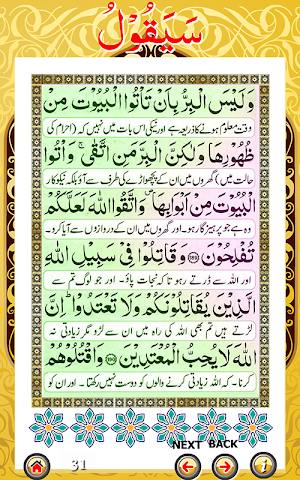 سَيَقُوْلُ
وَلَيْسَ الْبِرُّ بِاَنْ تَاْتُوا الْبُيُوْتَ مِنْ
وقت معلوم ہونے کا ذریعہ ہے اور نیکی اس بات میں نہیں کہ (احرام کی
ظُهُوْرِهَا وَلٰكِنَّ الْبِرَّ مَنِ اتَّقٰى ۚ وَاْتُوا
حالت میں) گھروں میں ان کے پچھواڑے کی طرف سے آؤ بلکہ نیکوکار
الْبُيُوْتَ مِنْ اَبْوَابِهَا ۠ وَاتَّقُوا اللّٰهَ لَعَلَّكُمْ
وہ ہے جو پرہیز گار ہو۔ اور گھروں میں ان کے دروازوں سے آیا کرو۔
تُفْلِحُوْنَ ﴿189﴾ وَقَاتِلُوْا فِیْ سَبِيْلِ اللّٰهِ
اور اللہ سے ڈرتے رہو تا کہ نجات پاؤ۔ اور جو لوگ تم سے
الَّذِيْنَ يُقَاتِلُوْنَكُمْ وَلَا تَعْتَدُوْا ۭ اِنَّ
لڑتے ہیں تم بھی اللہ کی راہ میں ان سے لڑو مگر زیادتی نہ
اللّٰهَ لَا يُحِبُّ الْمُعْتَدِيْنَ ﴿190﴾ وَاقْتُلُوْهُمْ
کرنا۔ کہ اللہ زیادتی کرنے والوں کو دوست نہیں رکھتا۔ اور ان کو
NEXT BACK
31